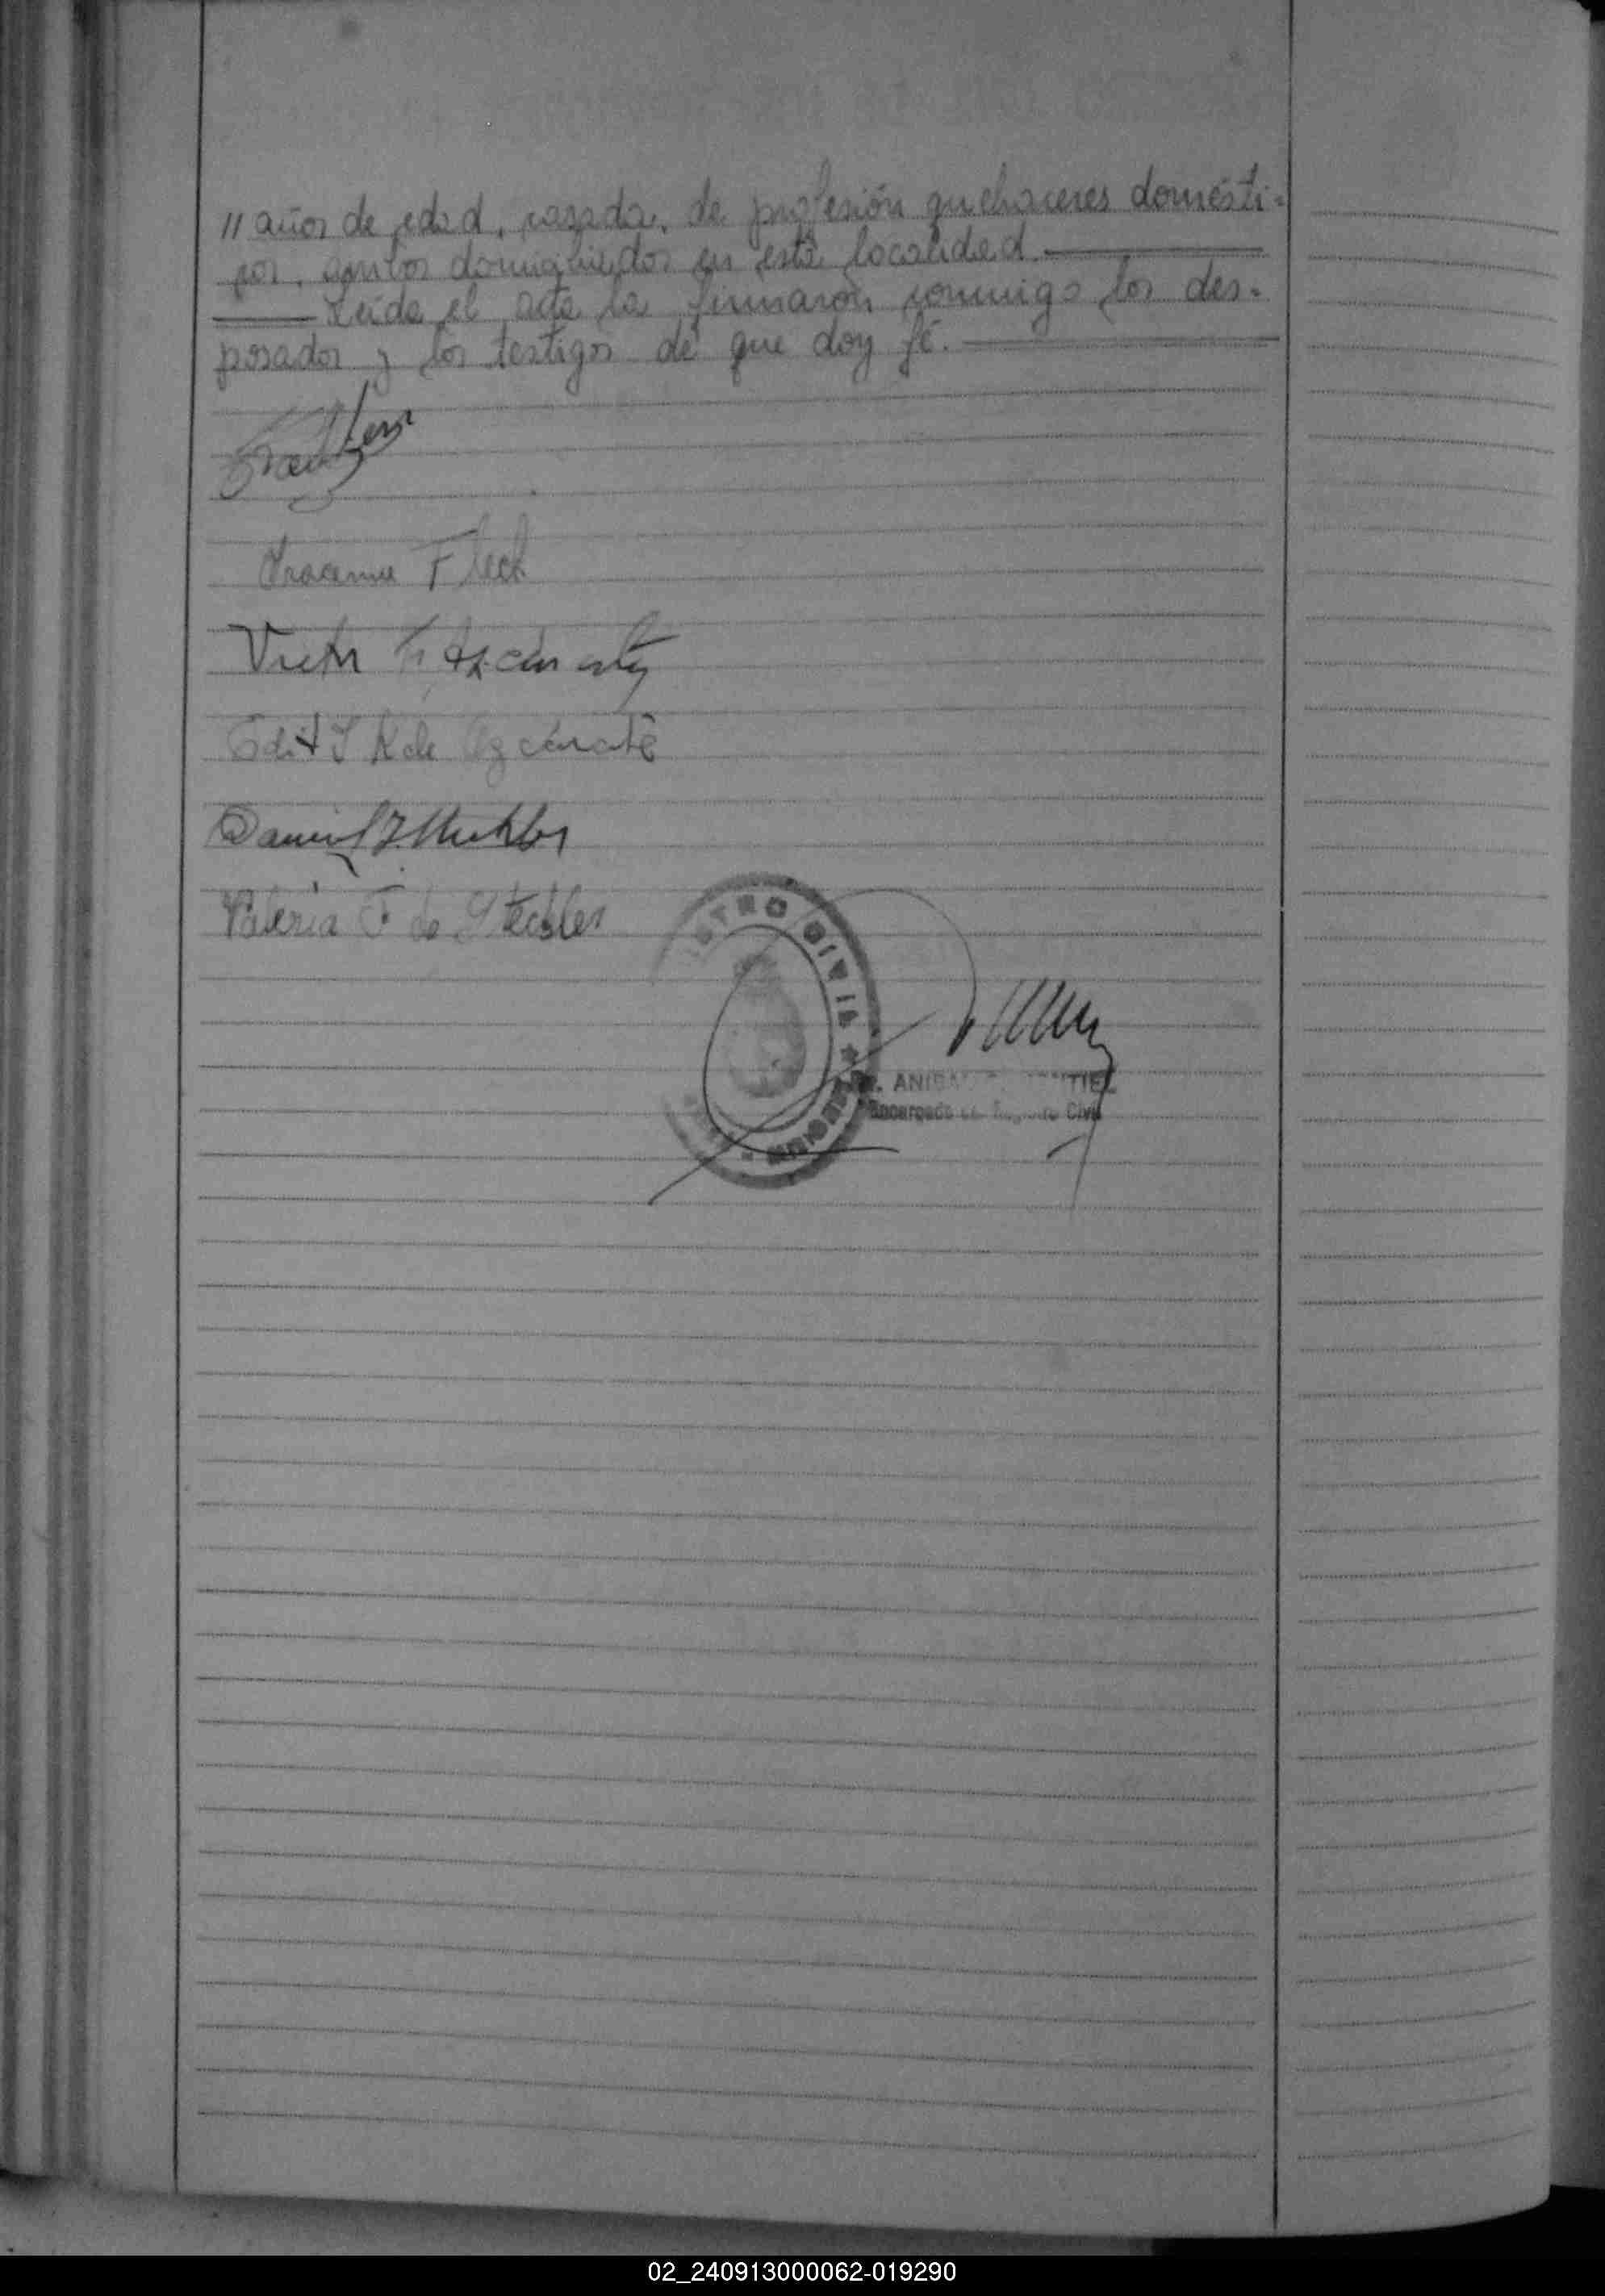 " años de edad, casada, de profesión quehaceres domésti-
cos, ambos domiciliados en esta localidad.
Leída el acta la firmaron conmigo los des-
posados y los testigos de que doy fé.
Fleck
Victor Azcárate
Edit S K de Azcárate
Daniel J. Stechler
Valeria F de Stechler
ISTRO CIVIL ★
. ANIBA TIEL
Encargado del Registro Civil
02_240913000062-019290